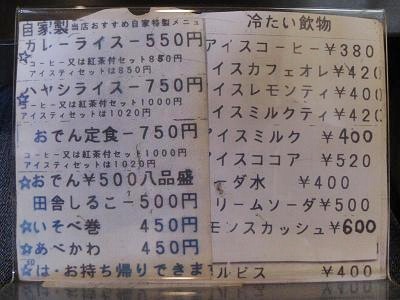 自家製 当店おすすめ自家特製メニュー
カレーライスー550円
☆コーヒー又は紅茶付セット850円
アイスティセットは850円
ハヤシライスー750円
☆コーヒー又は紅茶付セット1000円
アイスティセットは1020円
おでん定食ー750円
コーヒー又は紅茶付セット1000円
アイスティセットは1020円
☆おでん¥500八品盛
田舎しるこー500円
☆いそべ巻 450円
☆あべかわ 450円
☆は・お持ち帰りできま
冷たい飲物
アイスコーヒー¥380
イスカフェオレ¥420
イスレモンティ¥400
イスミルクティ¥420
アイスミルク ¥400
イスココア ¥520
ーダ水 ¥400
リームソーダ¥500
モンスカッシュ¥600
ルピス ¥400